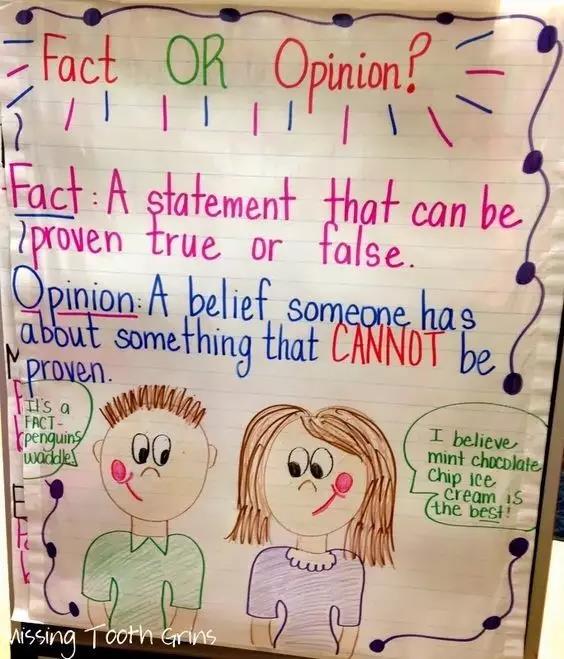 Fact OR Opinion?
Fact: A statement that can be
proven true or false.
Opinion: A belief someone has
about something that CANNOT be
proven.
It's a
FACT-
penguins
waddle!
I believe
mint chocolate
chip ice
cream is
the best!
Missing Tooth Grins